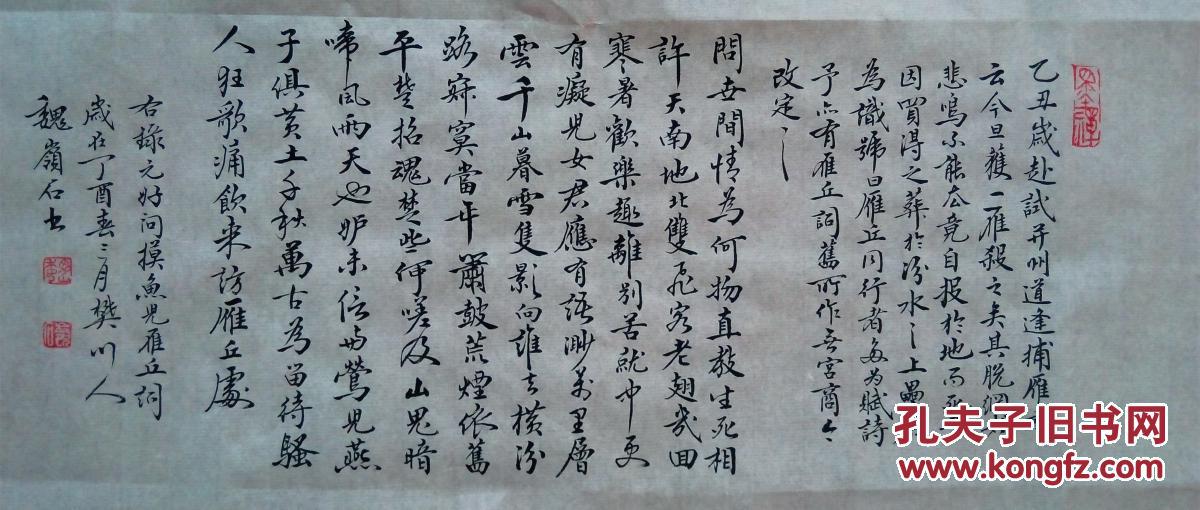 乙丑歲赴試并州道逢捕雁
云今旦獲一雁殺之矣其脫網
悲鳴不能去竟自投於地而死
因買得之葬於汾水之上壘
為識號曰雁丘同行者多為賦詩
予亦有雁丘詞舊所作無宮商今
改定之
問世間情為何物直教生死相
許天南地北雙飛客老翅幾回
寒暑歡樂趣離別苦就中更
有癡兒女君應有語渺萬里層
雲千山暮雪隻影向誰去橫汾
路寂寞當年簫鼓荒煙依舊
平楚招魂楚些何嗟及山鬼暗
啼風雨天也妒未信與鶯兒燕
子俱黃土千秋萬古為留待騷
人狂歌痛飲來訪雁丘處
右錄元好問摸魚兒雁丘詞
歲在丁酉春三月樊川人
魏嶺石書
孔夫子旧书网
www.kongfz.com